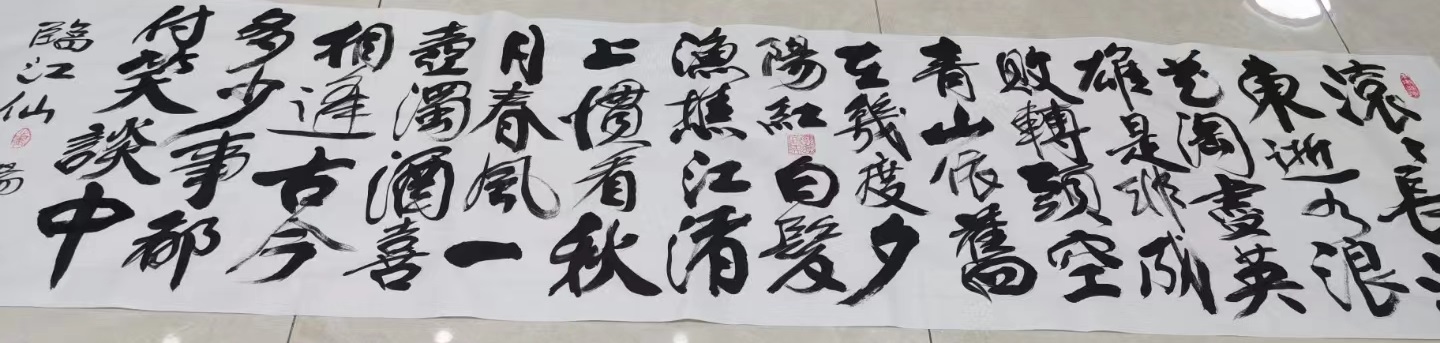 滚〻長
東逝水浪
花淘盡英
雄是非成
敗轉頭空
青山依舊
在幾度夕
陽紅白髮
漁樵江渚
上慣看秋
月春風一
壺濁酒喜
相逢古今
多少事都
付笑談中
臨江仙